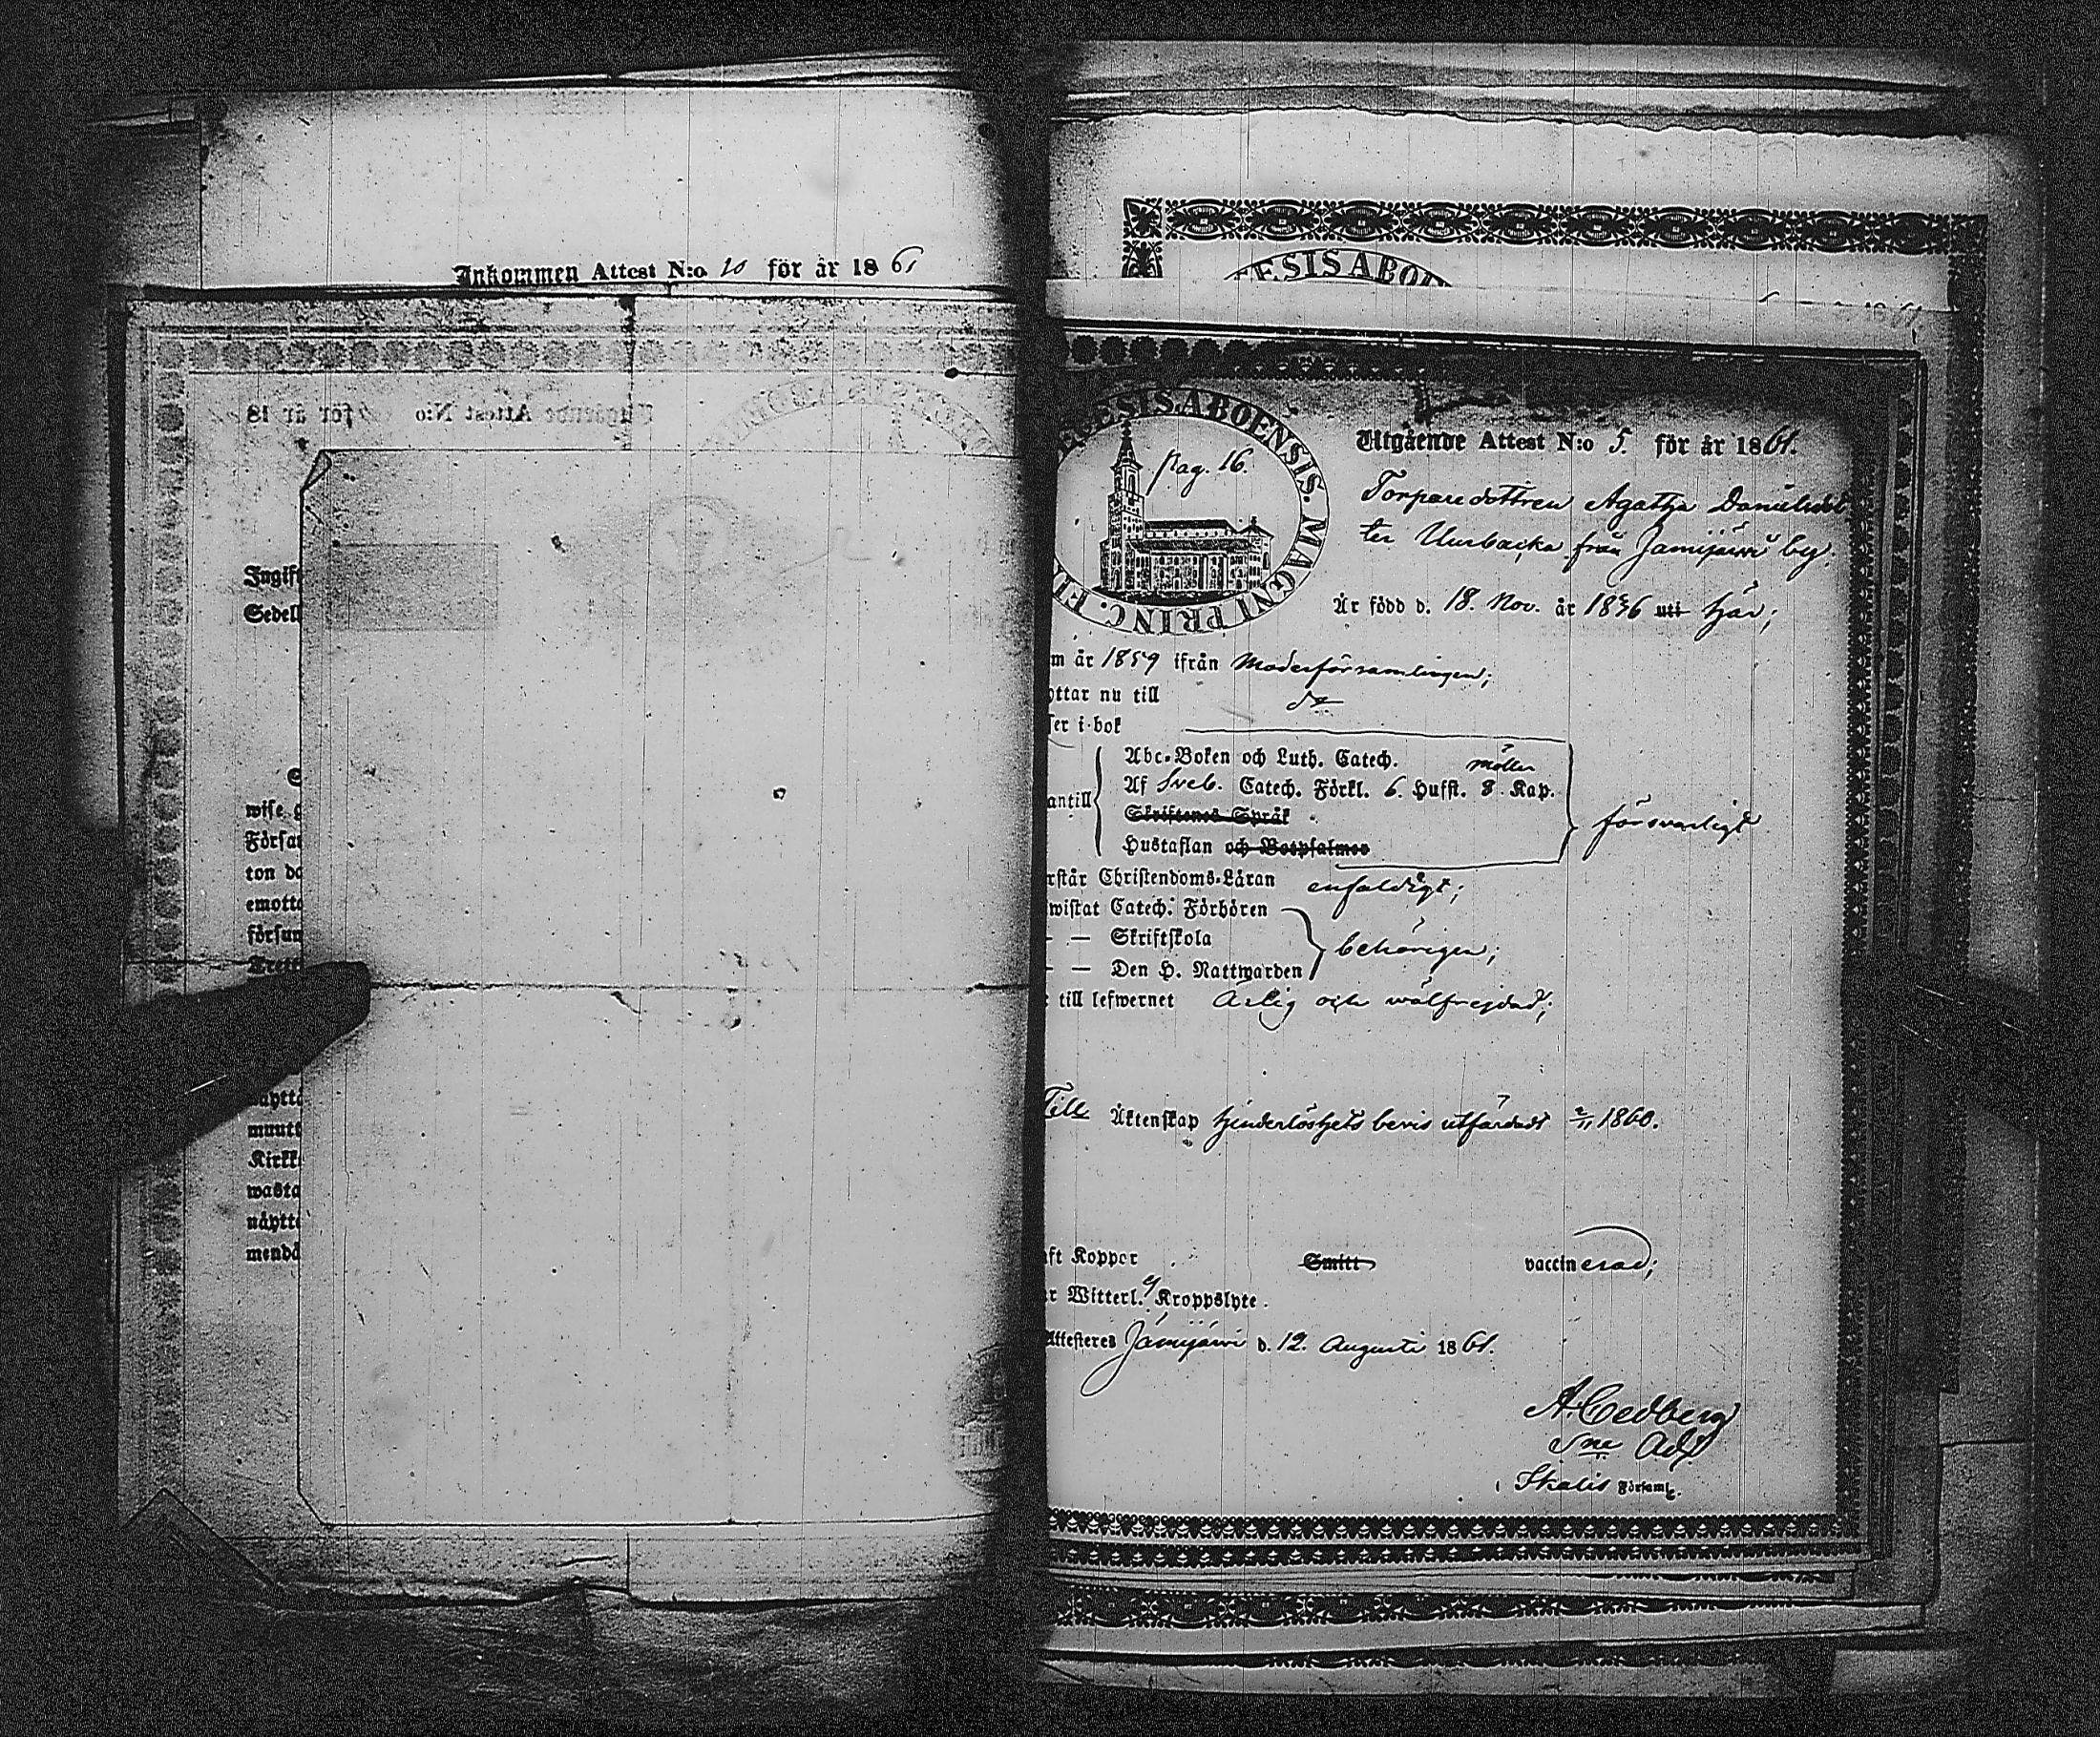 Inkommen Attest N:o 20 för år 1861
Utgående Attest N:o för år 18
Ingift
Sedell
wise g
Försam
ton da
emotta
försum
Trett
näyttä
muutt
Kirkk
wasta
näyttä
mendä
ŒCESIS ABOE
DIŒCESIS ABOENSIS. MAGNI PRINC. FI
pag. 16.
Utgående Attest N:o 5. för år 1861.
Torparedottren Agatha Danielsdot
ter Uurbacka från Jämijärvi by.
Är född d. 18. Nov. år 1836 uti här;
m år 1859 ifrån Moderförsamlingen;
ottar nu till do
ser i bok
antill
Abc-Boken och Luth. Catech.
Af Sveb. Catech. Förkl. 6. Hufst. 8. Kap.
Skriftenes Språk
Hustaflan och Botpsalmer
försvarligt
rstår Christendoms-Läran enfaldigt;
wistat Catech. Förhören
— — Skriftskola
— — Den H. Nattwarden
behörigen;
till lefwernet Ärlig och välfrejdad;
Till Äktenskap hinderlöshets bevis utfärdadt 2/11 1860.
aft Kopper Smitt vaccinerad;
r Witterl. ej Kroppslyte.
Attesteres Jämijärvi d. 12. Augusti 1861.
A. Cedberg
i Ikalis Församl.